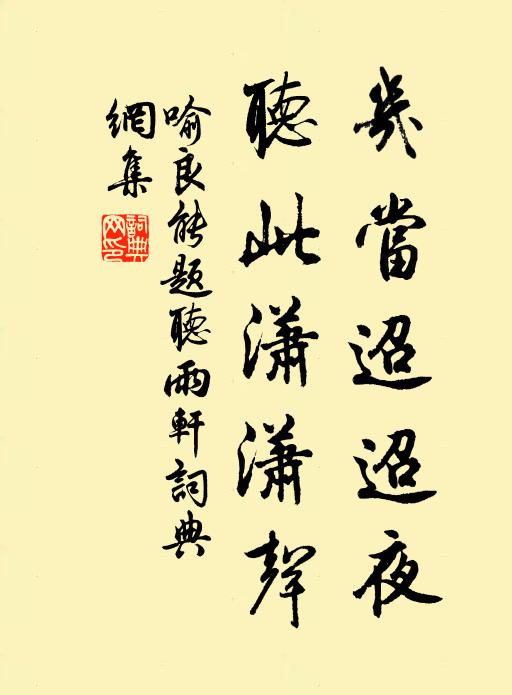 幾當迢迢夜
聽此瀟瀟聲
喻良能題聽雨軒詞典
網集
詞典
网印